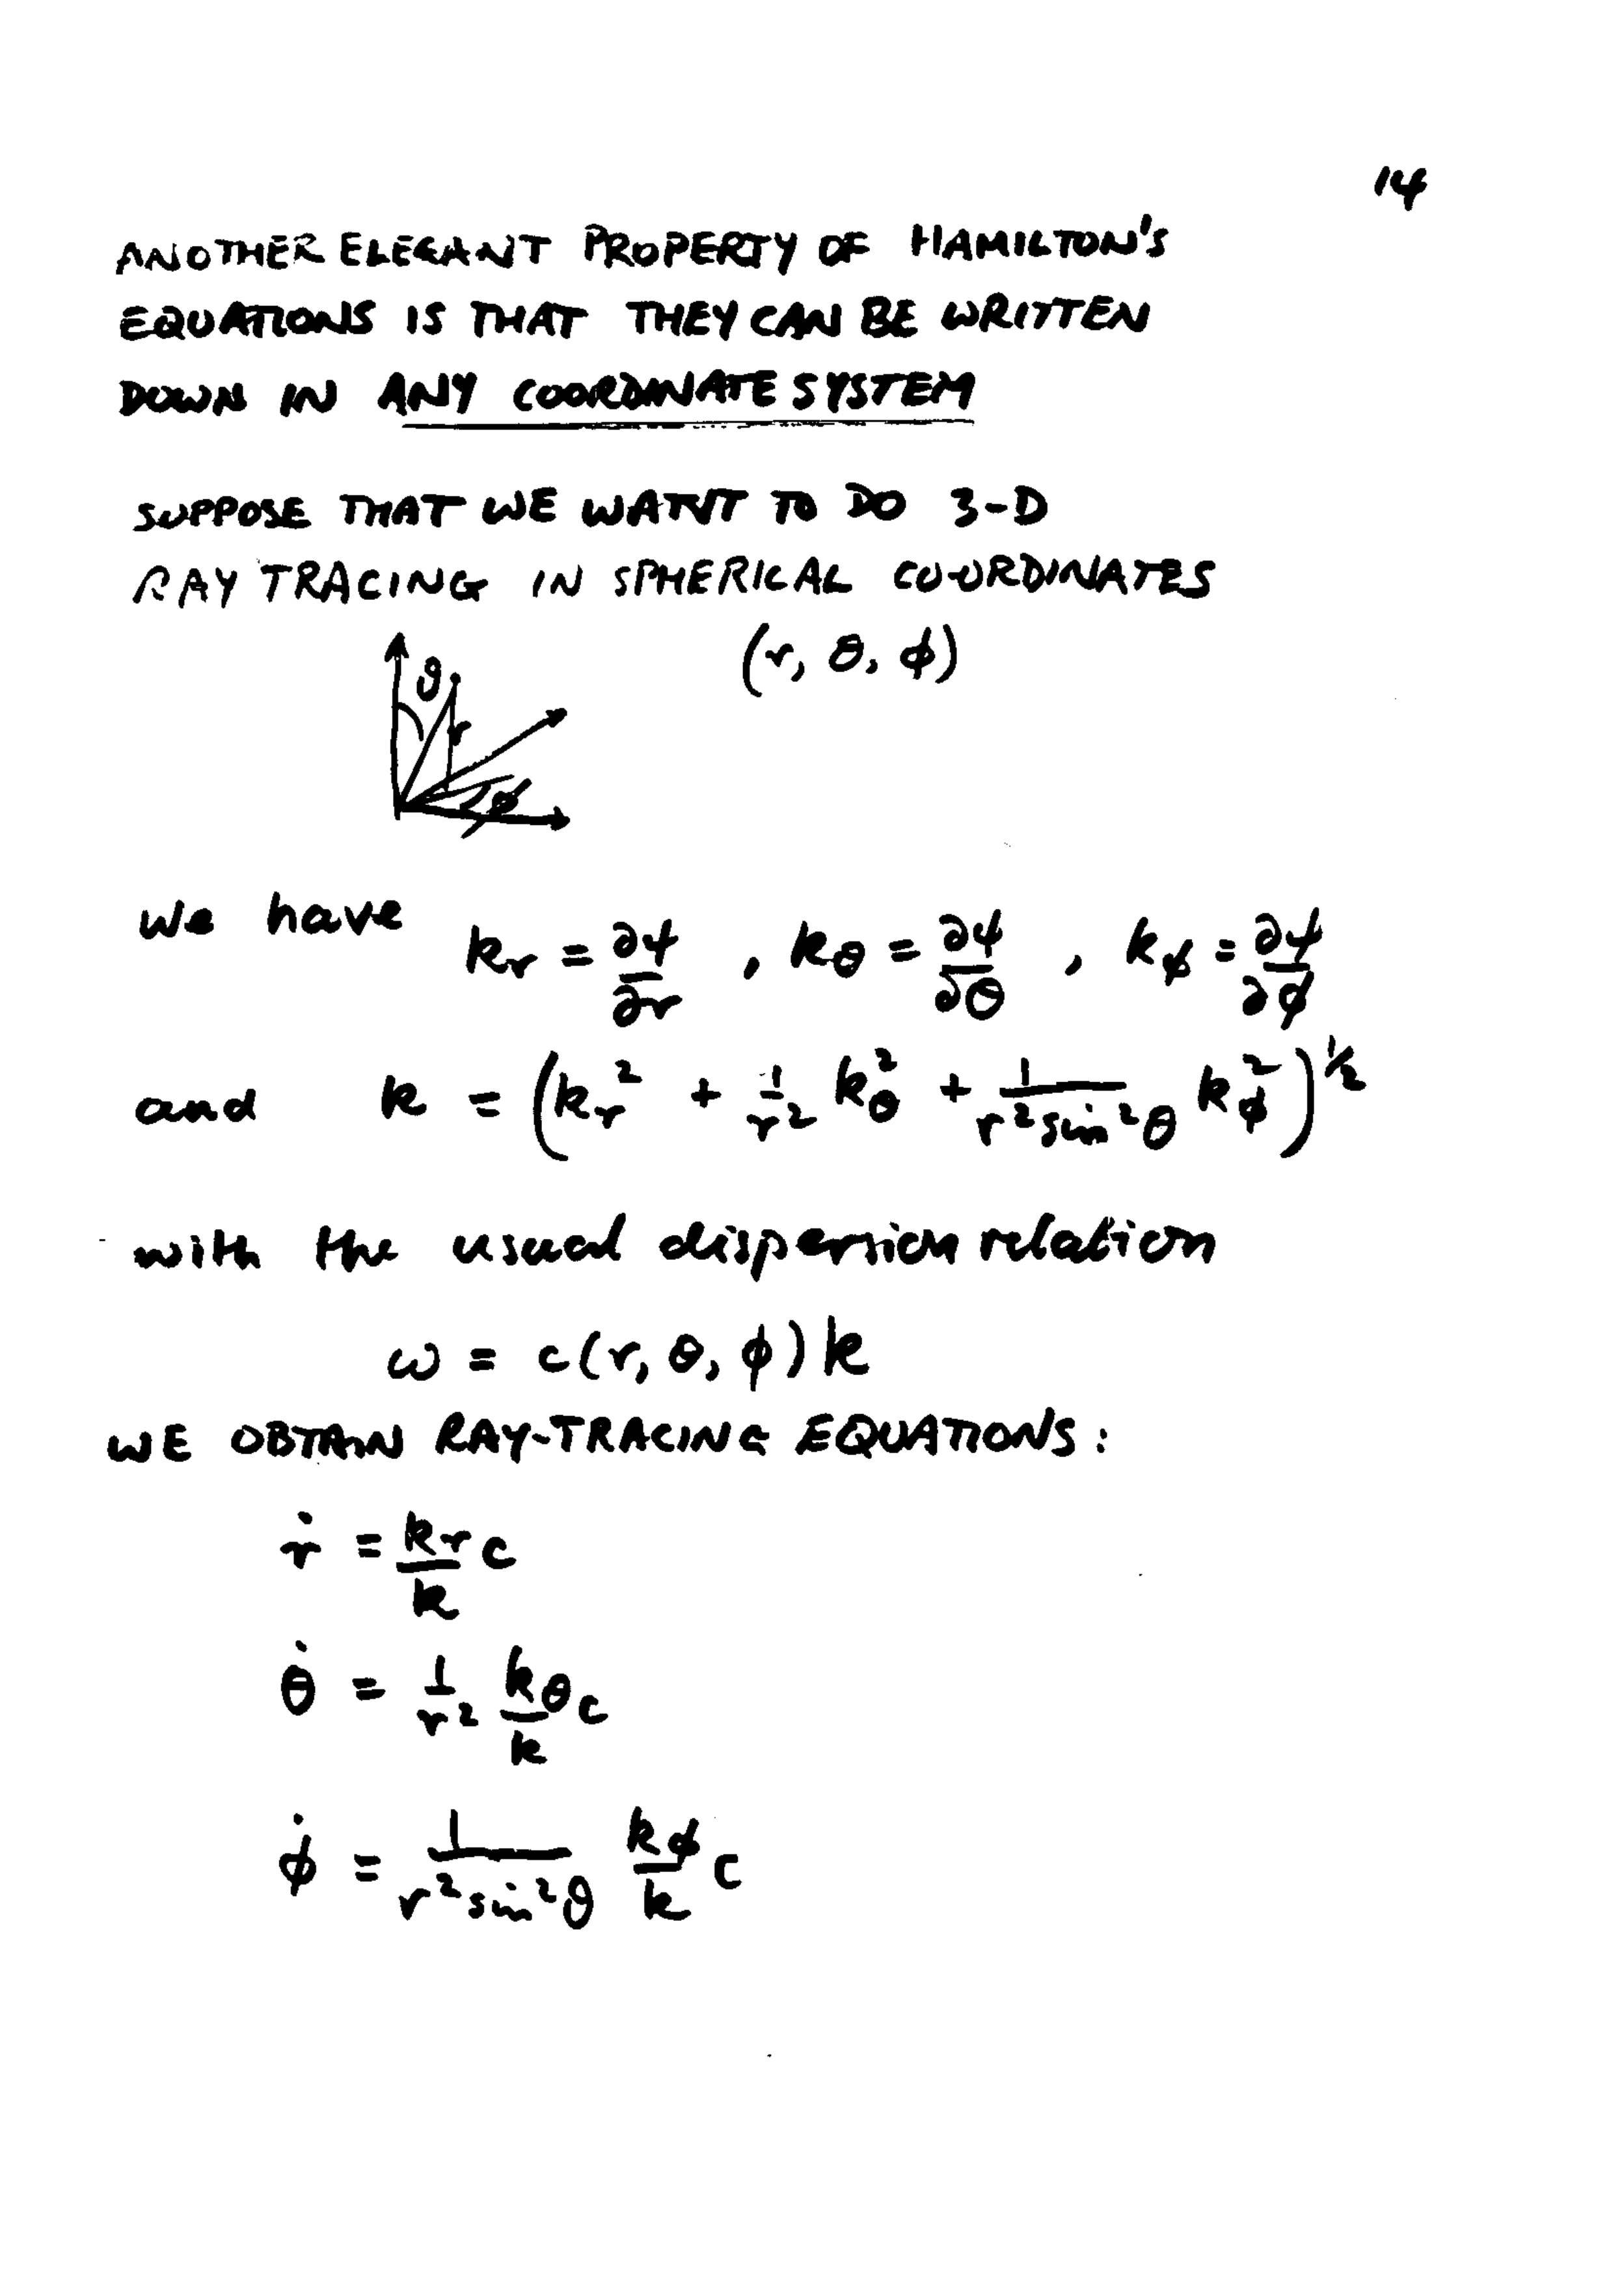 14
ANOTHER ELEGANT PROPERTY OF HAMILTON'S
EQUATIONS IS THAT THEY CAN BE WRITTEN
DOWN IN ANY COORDINATE SYSTEM
SUPPOSE THAT WE WANT TO DO 3-D
RAY TRACING IN SPHERICAL COORDINATES
(r, θ, ϕ)
θ
r
ϕ
we have k_r = ∂ψ/∂r , k_θ = ∂ψ/∂θ , k_ϕ = ∂ψ/∂ϕ
and k = (k_r^2 + 1/r^2 k_θ^2 + 1/(r^2 sin^2 θ) k_ϕ^2)^1/2
with the usual dispersion relation
ω = c(r, θ, ϕ) k
WE OBTAIN RAY-TRACING EQUATIONS:
ṙ = k_r/k c
θ̇ = 1/r^2 k_θ/k c
ϕ̇ = 1/(r^2 sin^2 θ) k_ϕ/k c